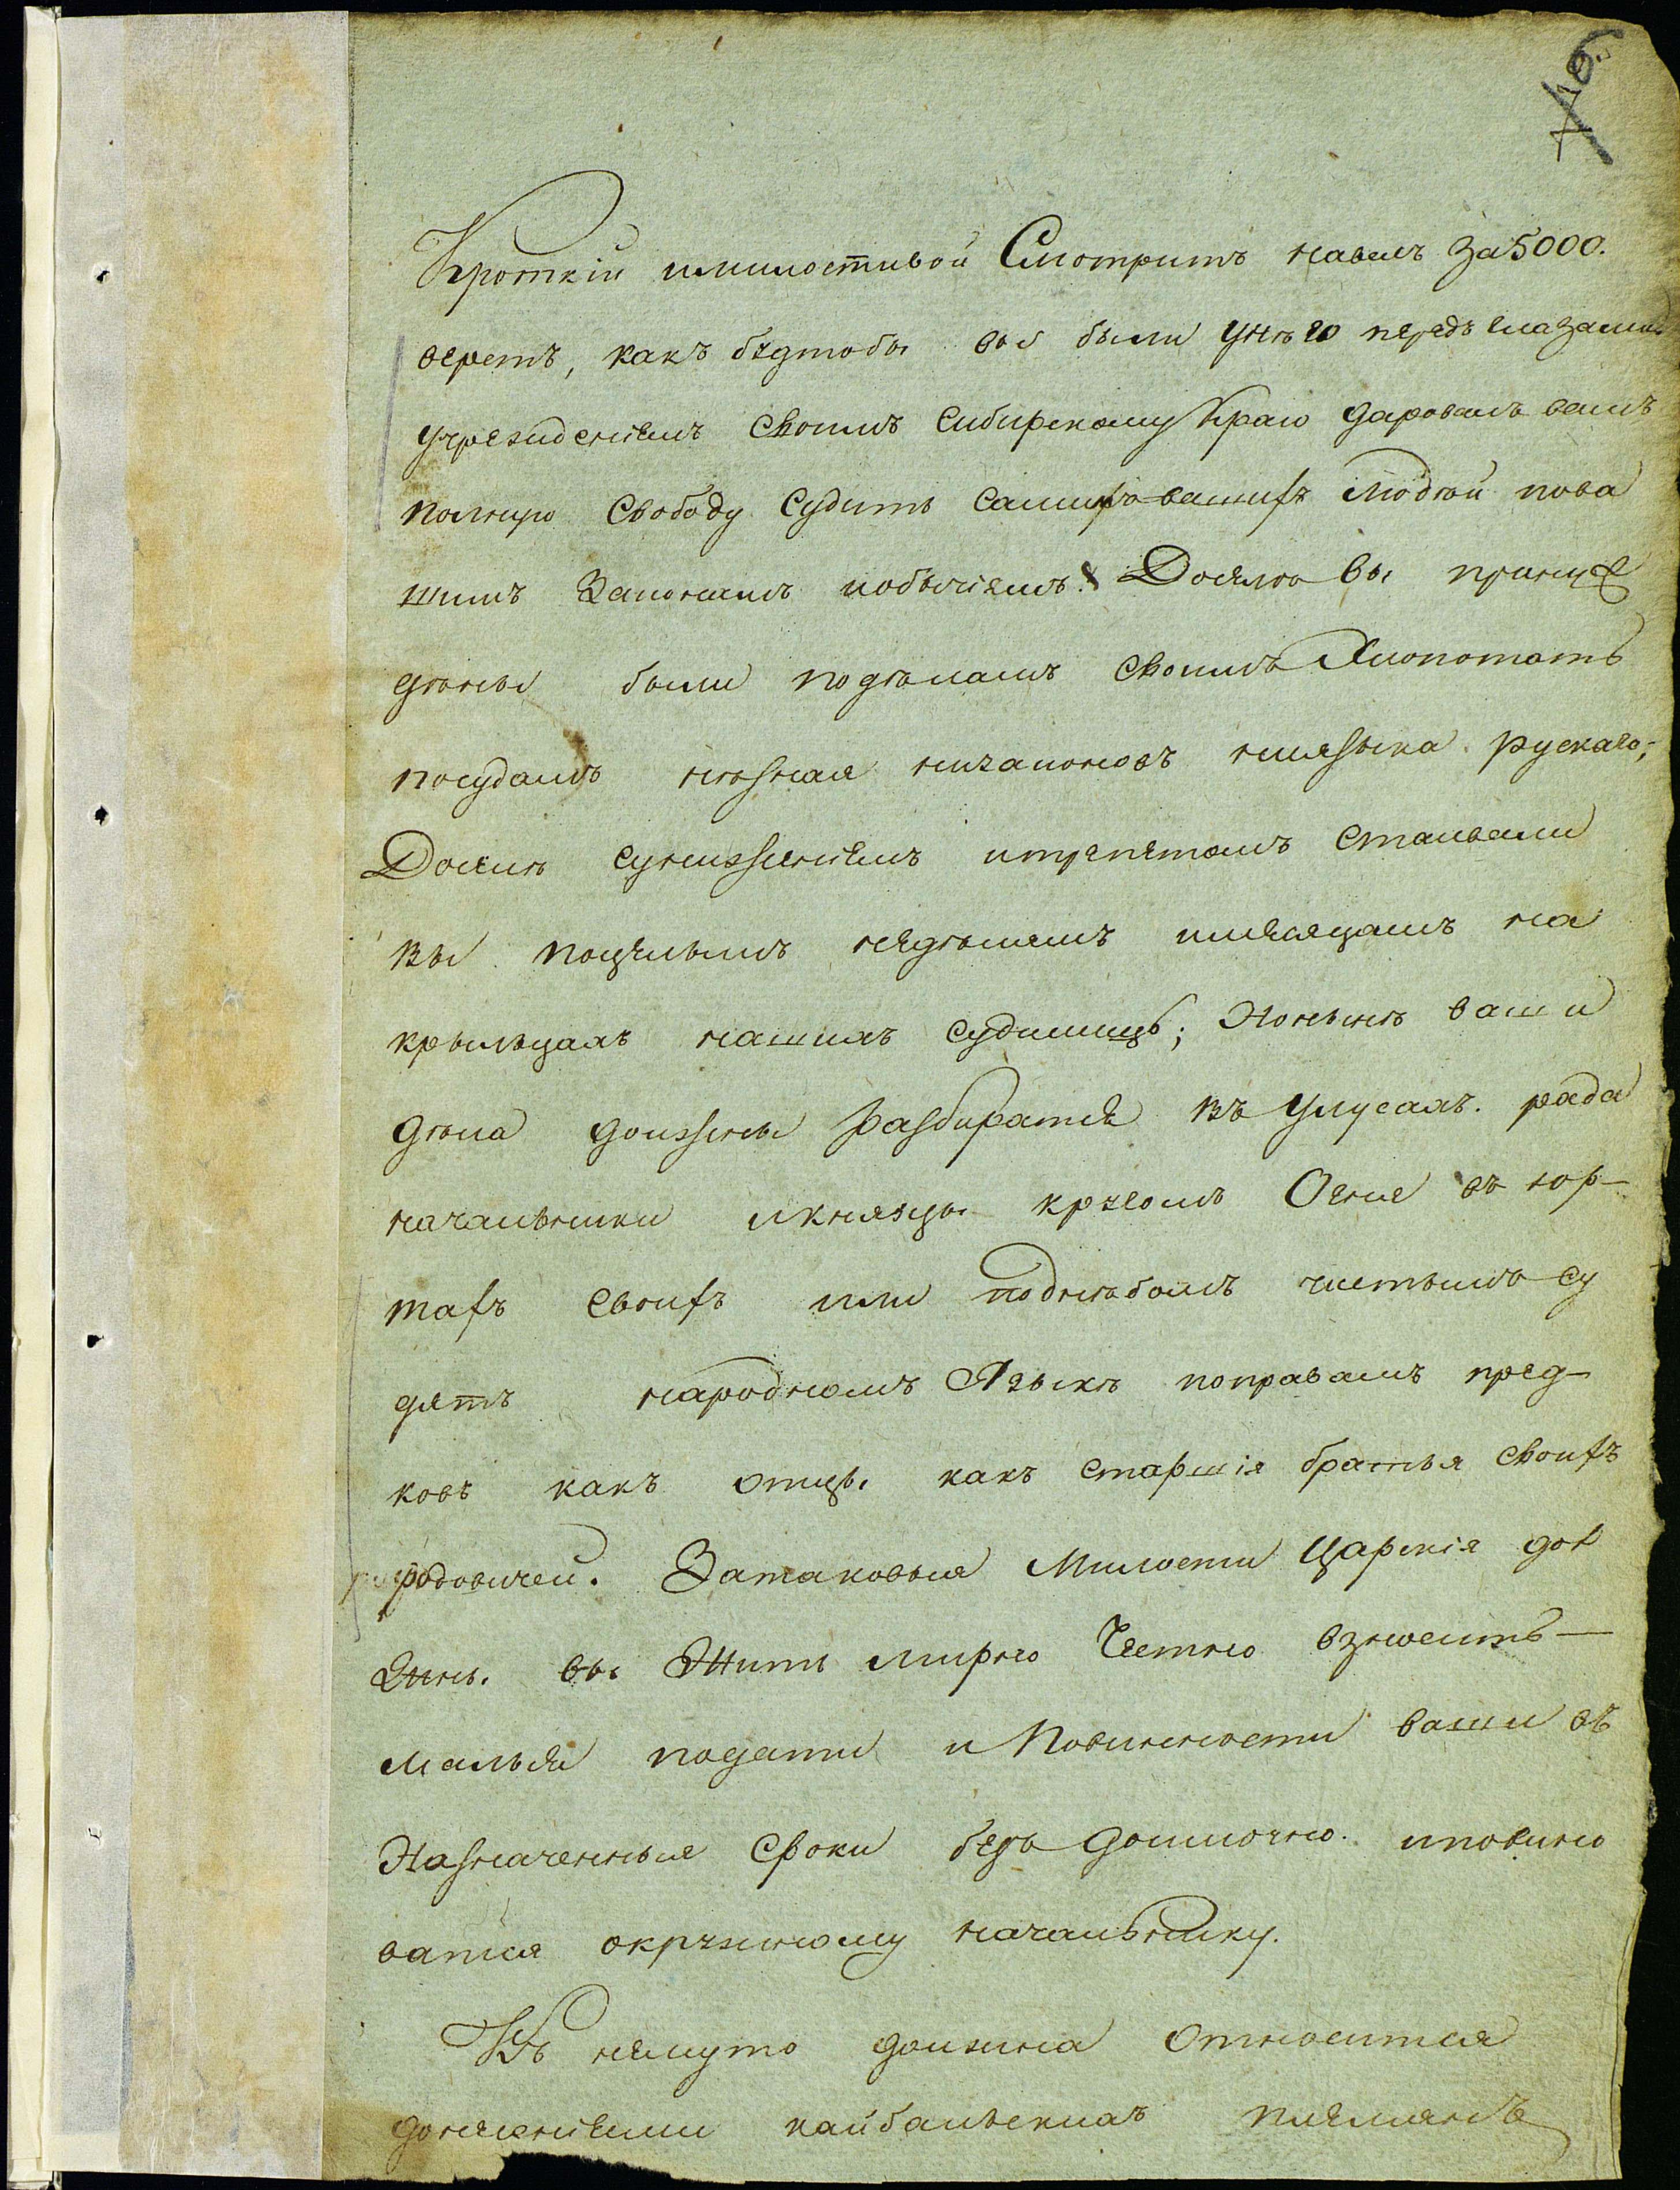 76
Кроткій имилостивой Смотритъ навасъ За5000.
верстъ, какъ бꙋдтобы вы были Унѣго передъ глазами
учрежденіемъ Своимъ Сибирскому Краю даровалъ вамъ
полную Свободу Судить Самимъ вашихъ Людей пова
шимъ Законамъ иобычіямъ. Доселѣ Вы принуж
дѣны были подѣламъ Своимъ Хлопотать
посудамъ нѣзная низаконовъ ниязыка рускаго;
Доселѣ Сунижѣніемъ итрепетомъ Стаивали
вы поцѣлымъ недѣлямъ имесяцамъ на
крыльцахъ нашихъ Судилищь; Нонынѣ ваши
дѣла должны разбиратся въ Улусахъ. рада
начальники икнязцы кругомъ Огня въ юр-
тахъ Своихъ или поднѣбомъ чистымъ Су
дятъ народномъ Языкѣ поправамъ пред-
ковъ какъ отцы какъ Старшія братья Своихъ
родовичей. Затаковыя Милости Царскія дол
жны вы Жить мирно Честно взносить
малыя подати и Повинности ваши въ
Назначенныя Сроки безъ доимочно. иповино
ватся окружному начальнику.
Къ немуто должна Относится
донесеніями кайбальскихъ племянъ